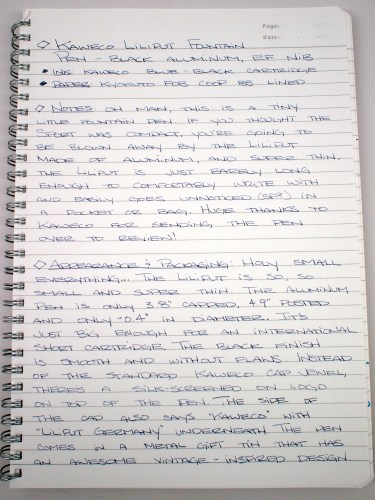 Page:
Date:
◇ Kaweco Liliput Fountain
Pen - Black Aluminum, EF Nib
• Ink: Kaweco Blue-Black Cartridge
• Paper: Kyokuto FOB COOP B5 Lined
◇ Notes: Oh man, this is a tiny
little fountain pen. If you thought the
Sport was compact, you're going to
be blown away by the Liliput.
Made of aluminum, and super thin.
The Liliput is just barely long
enough to comfortably write with
and easily goes unnoticed (sp?) in
a pocket or bag. Huge thanks to
Kaweco for sending the pen
over to review!
◇ Appearance & Packaging: Holy small
everything... The Liliput is so, so
small and super thin. The aluminum
pen is only 3.8" capped, 4.9" posted
and only ~0.4" in diameter. It's
just big enough for an international
short cartridge. The black finish
is smooth and without flaws. Instead
of the standard Kaweco cap jewel,
there's a silk-screened on logo
on top of the pen. The side of
the cap also says "Kaweco" with
"Liliput Germany" underneath. The pen
comes in a metal gift tin that has
an awesome vintage-inspired design.